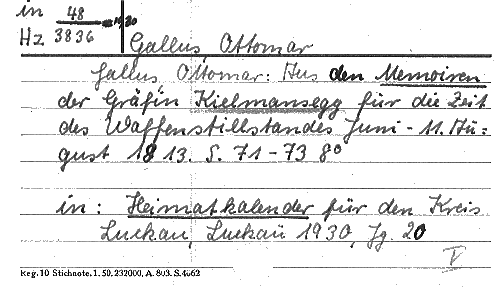 in 48
Hz 3836
Gallus, Ottomar
Gallus, Ottomar: Aus den Memoiren
der Gräfin Kielmansegg für die Zeit
des Waffenstillstandes Juni - 11. Au-
gust 1813. S. 71-73 8°
in: Heimatkalender für den Kreis
Luckau, Luckau 1930, Jg. 20
V
Reg. 10 Stichnote. 1. 50, 232000, A. 803. S. 4062